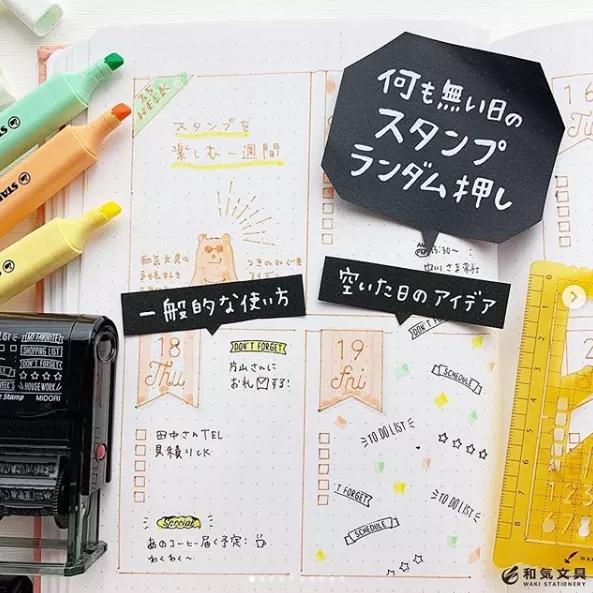 何も無い日の
スタンプ
ランダム押し
35
WEEK
スタンプを
楽しむ一週間
16
Tu
13:30〜
一般的な使い方
空いた日のアイデア
18
Thu
DON'T FORGET
片山さんに
お礼する!
田中さんTEL
見積りCK
Special
あのコーヒー届く予定!
わくわく〜
19
Fri
DON'T FORGET
SCHEDULE
TO DO LIST
T FORGET
TO DO LIST
SCHEDULE
STAB
STAB
STAB
MY FAVORITE
SHOPPING LIST
DON'T FORGET
HOUSEWORK
Stamp MIDORI
和気文具
WAKI STATIONERY